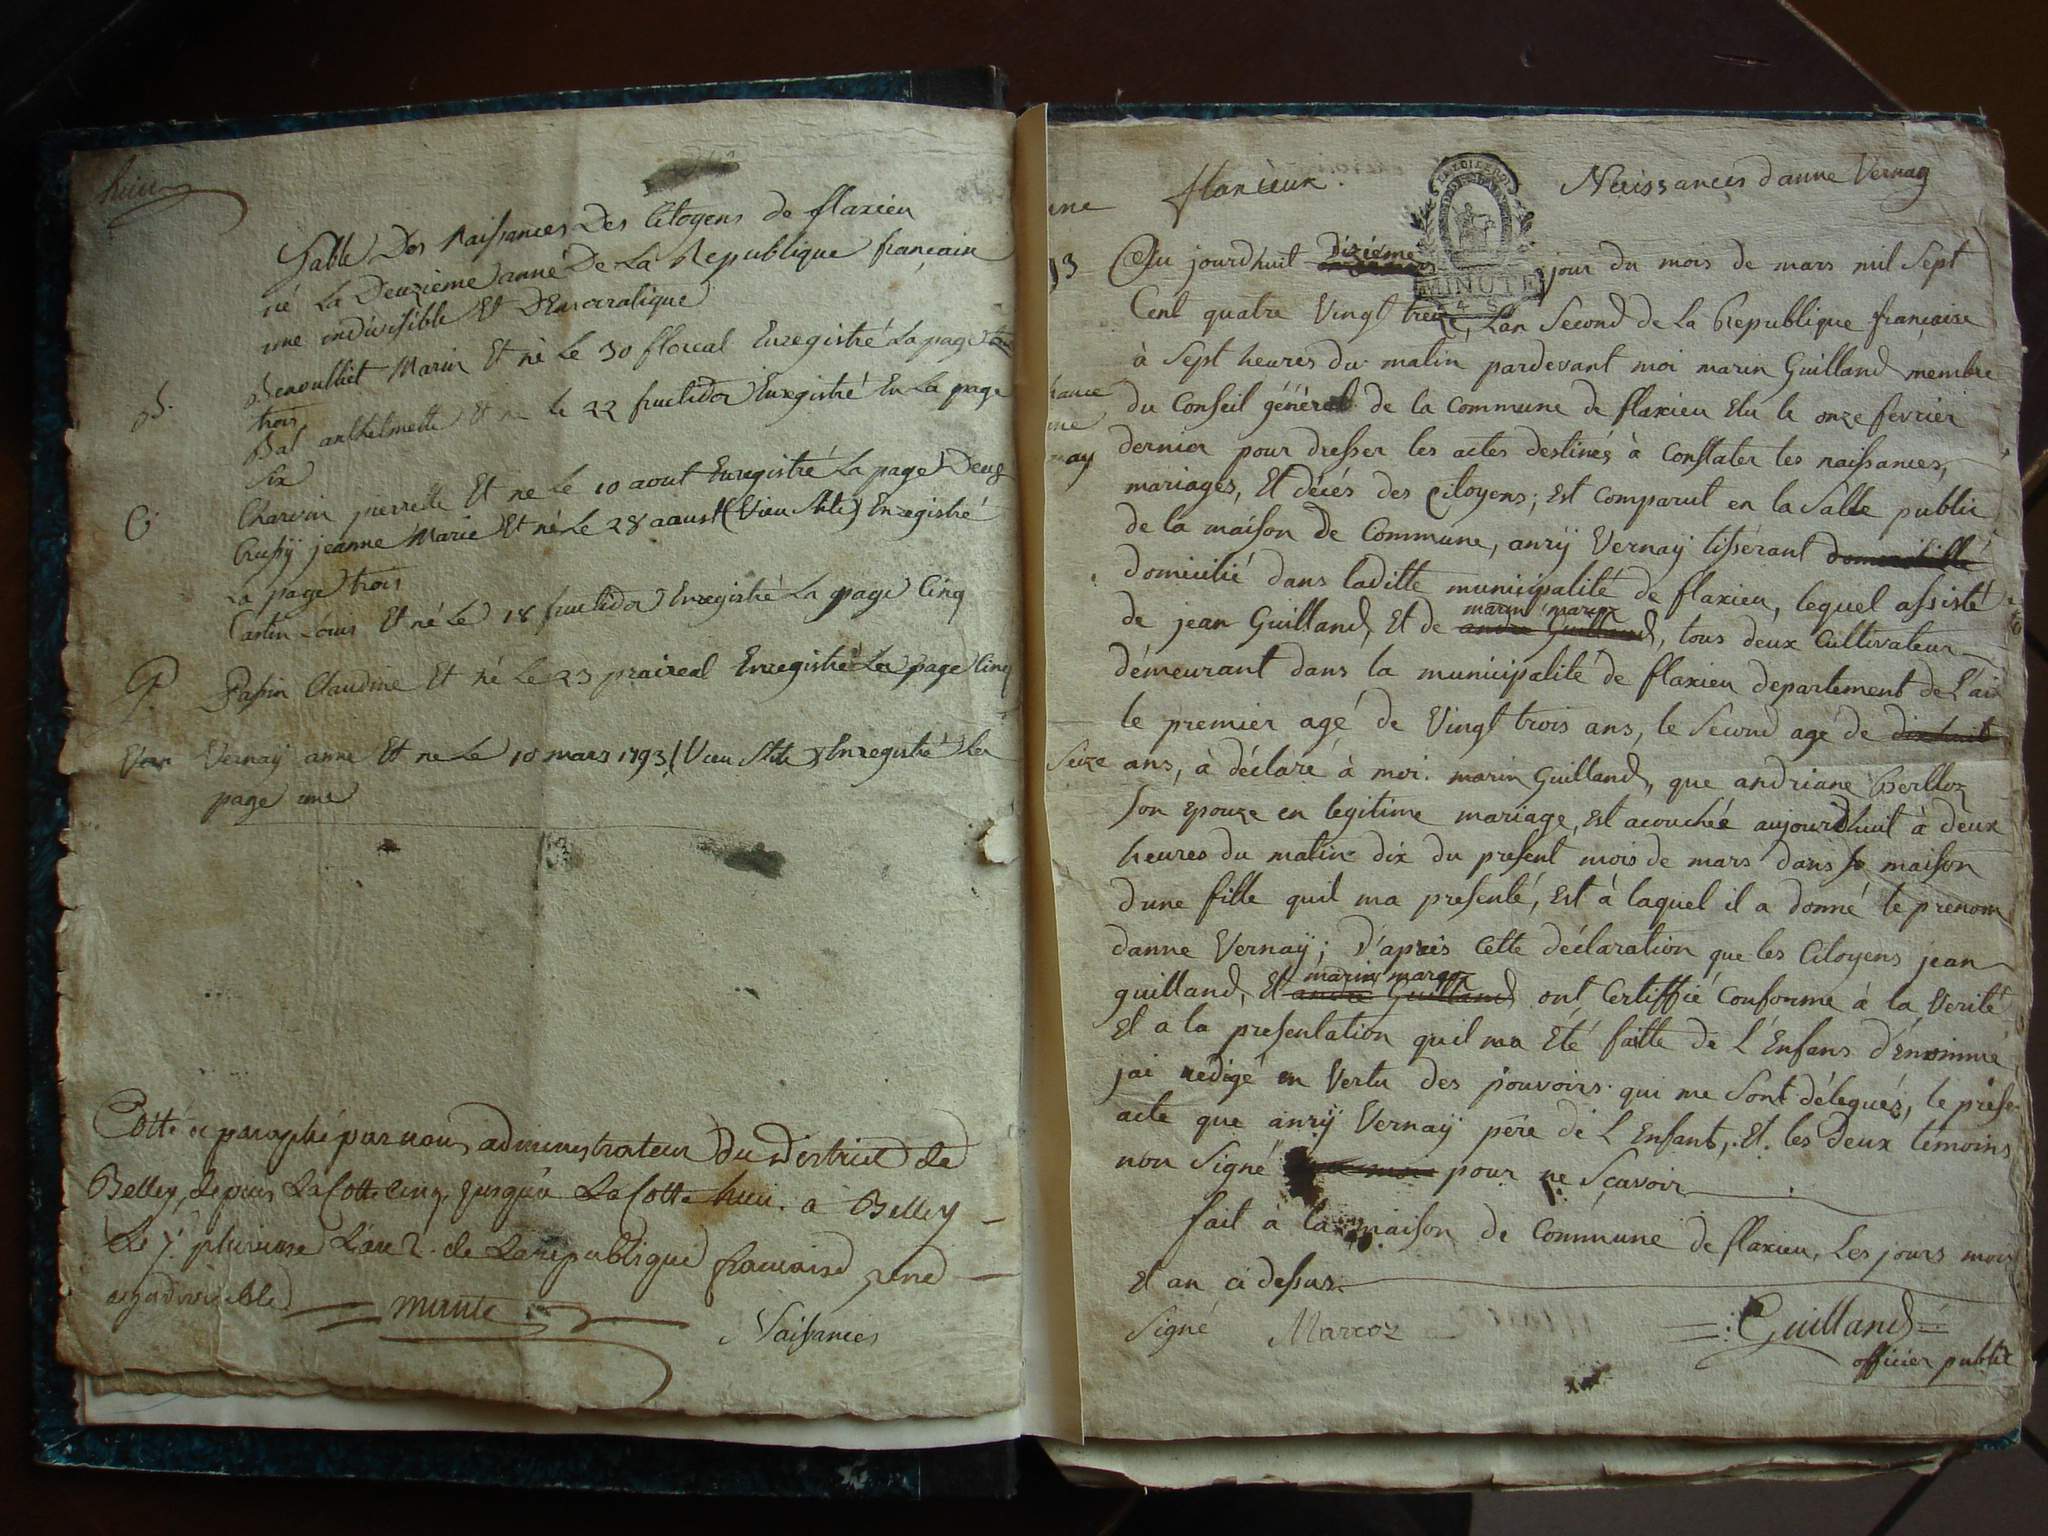 huit
Table Des Naissances Des Citoyens de flaxieu
né La Deuzieme anné De La Republique francain
une indivisible Et Democratique
B. Benoulliet Marin Et né Le 30 floreal Enregistré La page
trois
Bal anthelmette Et né le 22 fructidor Enregistré En La page
Six
C. Charvin pierrette Et né Le 10 aout Enregistré La page Deux
Crussÿ jeanne Marie Et né Le 28 aoust (Vieu Stile) Enregistré
La page trois
Castin Louis Et né Le 18 fructidor Enregistré La page Cinq
P. Passin Claudine Et né Le 23 praireal Enregistré La page Cinq
Ver Vernaÿ anne Et né Le 10 mars 1793 (Vieu Stile) Enregistré La
page une
Cotté et paraphé par nous administrateur Du District de
Belley, depuis La Cotte Cinq, jusqu'a La Cotte huit. a Belley
Le 7e. pluviose L'an 2. de La republique francaise une
et indivisible
Naissances
flaxieux. Naissances danne Vernay
MINUTE
Ce jourdhuit Dizième jour du mois de mars mil Sept
Cent quatre Vingt treize, Lan Second de La Republique francaise
à Sept heures du matin pardevant moi marin Guilland, membre
du Conseil général de la Commune de flaxieu Elu le onze fevrier
dernier pour dresser les actes destinés à Constater les naissances,
mariages, Et décés des Citoyens; Est Comparut en la Salle public
de la maison de Commune, anrÿ Vernaÿ tisserant domicillié
domicilié dans laditte municipalité de flaxieu, lequel assisté
de jean Guilland, Et de andre Guilland marin marcoz, tous deux Cultivateur
démeurant dans la municipalité de flaxieu departement de L'ain
le premier agé de Vingt trois ans, le Second agé de dixhuit
Seize ans, à déclaré à moi. marin Guilland, que andriane Berlioz
son epouze en legitime mariage, Est acouchée aujourdhuit à deux
heures du matin dix du present mois de mars dans sa maison
dune fille quil ma presenté, Est à laquel il a donné le prenom
danne Vernaÿ; D'apres Cette déclaration que les Citoyens jean
guilland, Et andre Guilland marin marcoz ont Certiffié Conforme à la Verité
Et a la presentation quil ma Eté faitte de L'Enfans d'énommé
jai redigé en Vertu des pouvoirs qui me Sont délegués, le presen
acte que anrÿ Vernaÿ pêre de L'Enfant, Et les deux temoins
non Signé pour ne Sçavoir
fait à la maison de Commune de flaxieu, Les jours mois
Et an ci dessus.
Signé Marcoz Guilland
officier public